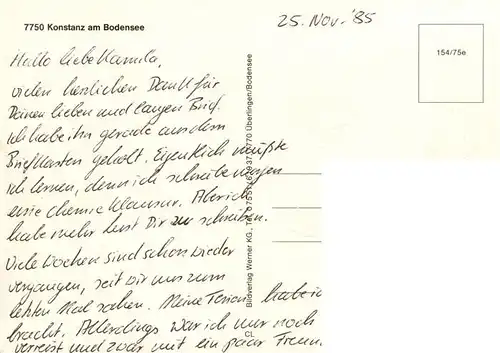 7750 Konstanz am Bodensee
25. Nov. '85
154/75e
Hallo liebe Kamila,
vielen herzlichen Dank für
Deinen lieben und langen Brief.
Ich habe ihn gerade aus dem
Briefkasten geholt. Eigentlich müßte
ich lernen, denn ich schreibe morgen
eine Chemie Klausur. Aber ich
habe mehr Lust Dir zu schreiben.
Viele Wochen sind schon wieder
vergangen, seit wir uns zum
letzten Mal sahen. Meine Ferien habe ich
bracht. Allerdings war ich nur noch
verreist und zwar mit ein paar Freun.
Bildverlag Werner KG, 7770 Überlingen/Bodensee
CL